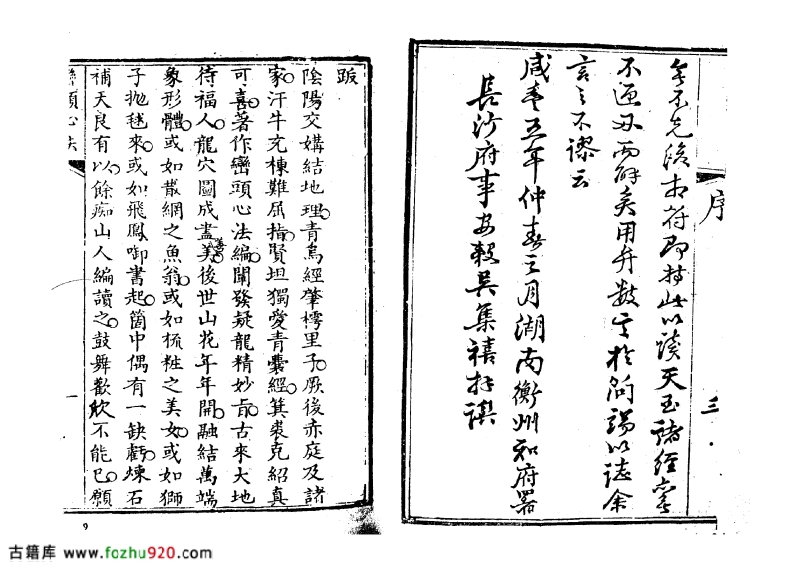 序
三
無不先後相符即持此以讀天玉諸經當
不逕毋而解矣用弁數言於簡端以誌余
言之不謬云
咸豐五年仲春之月湖南衡州知府署
長沙府事安穀吳集禧拜譔
跋
陰陽交媾結地理青烏經肇樗里子厥後赤庭及諸
家汗牛充棟難屈指賢坦獨愛青囊經箕裘克紹真
可喜著作巒頭心法編闡發疑龍精妙旨古來大地
待福人龍穴圖成盡美善後世山花年年開融結萬端
象形體或如散網之魚翁或如梳粧之美女或如獅
子拋毬來或如飛鳳啣書起箇中偶有一缺虧煉石
補天良有以餘痴山人編讀之鼓舞歡欣不能已願
巒頭心法
一
9
古籍库 www.fozhu920.com